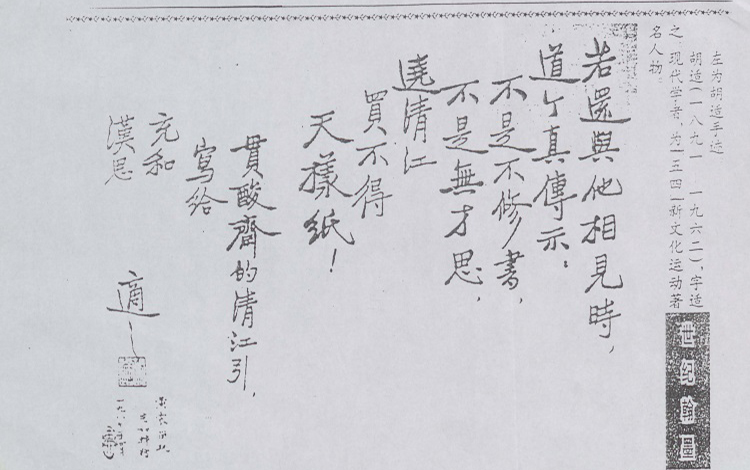 左为胡适手迹
胡适(一八九一 一九六二),字适
之 现代学者,为「五四」新文化运动著
名人物
世纪翰墨
若還與他相見時,
道个真傳示:
不是不修書,
不是無才思,
遶清江
買不得
天樣紙!
貫酸齋的清江引,
寫給
充和
漢思
適之